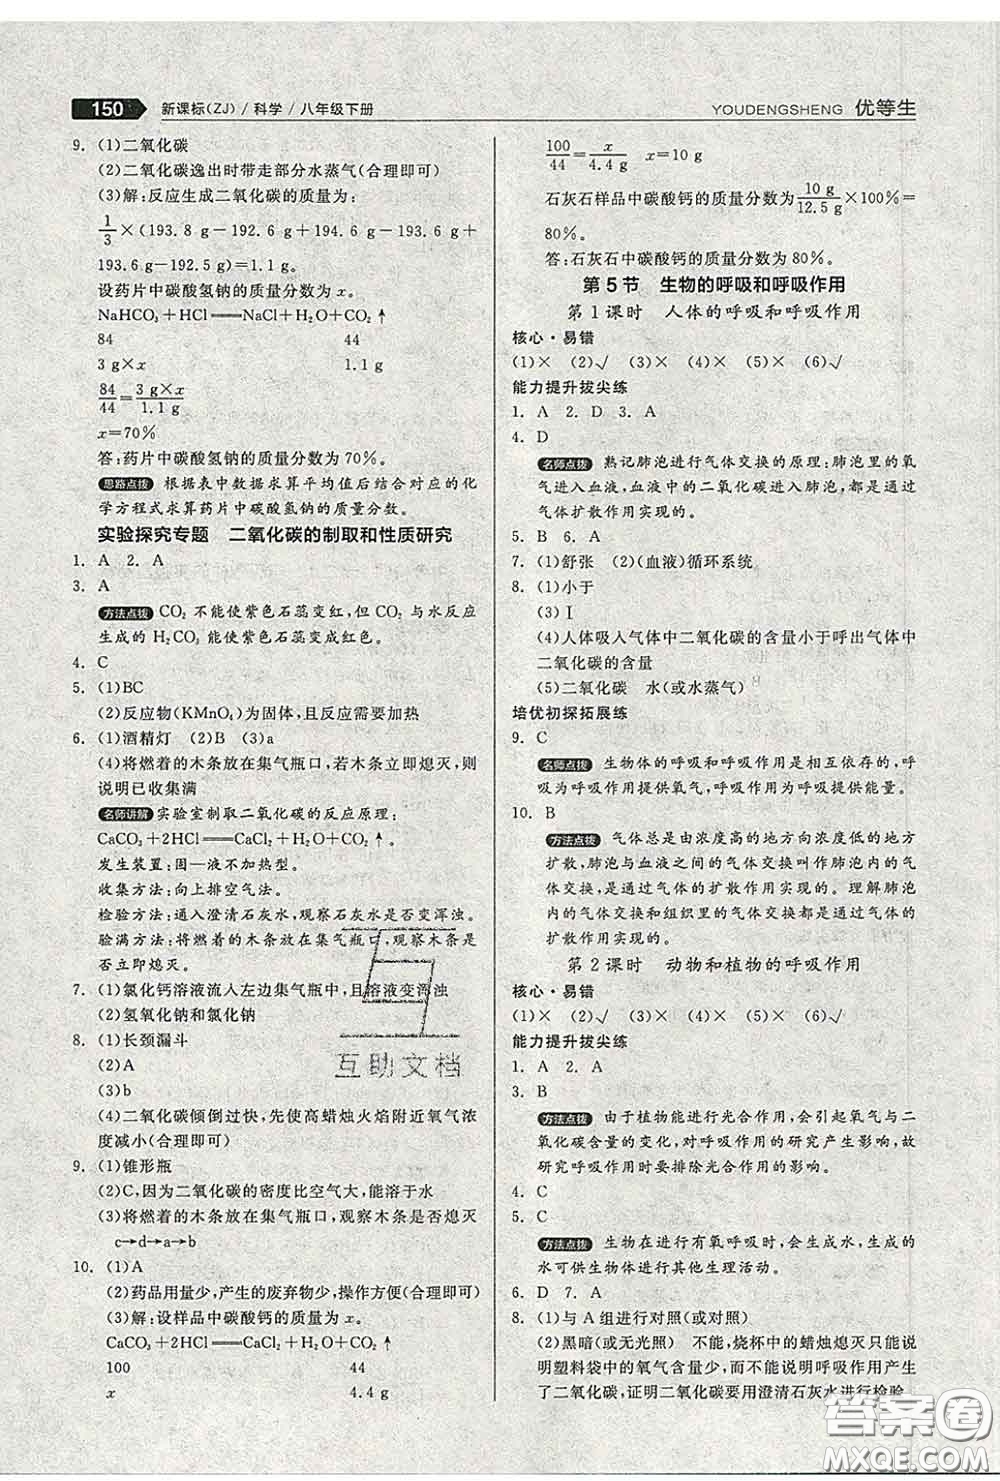 150 新课标(ZJ)/科学/八年级下册
YOUDENGSHENG 优等生
9. (1)二氧化碳
(2)二氧化碳逸出时带走部分水蒸气(合理即可)
(3)解:反应生成二氧化碳的质量为:
1/3×(193.8 g－192.6 g＋194.6 g－193.6 g＋
193.6 g－192.5 g)＝1.1 g。
设药片中碳酸氢钠的质量分数为 x。
NaHCO₃＋HCl══NaCl＋H₂O＋CO₂↑
84 44
3 g×x 1.1 g
84/44＝3 g×x/1.1 g
x＝70%
答:药片中碳酸氢钠的质量分数为 70%。
思路点拨 根据表中数据求算平均值后结合对应的化
学方程式求算药片中碳酸氢钠的质量分数。
实验探究专题 二氧化碳的制取和性质研究
1. A 2. A
3. A
方法点拨 CO₂ 不能使紫色石蕊变红,但 CO₂ 与水反应
生成的 H₂CO₃ 能使紫色石蕊变成红色。
4. C
5. (1)BC
(2)反应物(KMnO₄)为固体,且反应需要加热
6. (1)酒精灯 (2)B (3)a
(4)将燃着的木条放在集气瓶口,若木条立即熄灭,则
说明已收集满
名师讲解 实验室制取二氧化碳的反应原理:
CaCO₃＋2HCl══CaCl₂＋H₂O＋CO₂↑
发生装置:固—液不加热型。
收集方法:向上排空气法。
检验方法:通入澄清石灰水,观察石灰水是否变浑浊。
验满方法:将燃着的木条放在集气瓶口,观察木条是
否立即熄灭。
7. (1)氯化钙溶液流入左边集气瓶中,且溶液变浑浊
(2)氢氧化钠和氯化钠
8. (1)长颈漏斗
(2)A
(3)b
(4)二氧化碳倾倒过快,先使高蜡烛火焰附近氧气浓
度减小(合理即可)
9. (1)锥形瓶
(2)C,因为二氧化碳的密度比空气大,能溶于水
(3)将燃着的木条放在集气瓶口,观察木条是否熄灭
c→d→a→b
10. (1)A
(2)药品用量少,产生的废弃物少,操作方便(合理即可)
(3)解:设样品中碳酸钙的质量为 x。
CaCO₃＋2HCl══CaCl₂＋H₂O＋CO₂↑
100 44
x 4.4 g
100/44＝x/4.4 g x＝10 g
石灰石样品中碳酸钙的质量分数为10 g/12.5 g×100%＝
80%。
答:石灰石中碳酸钙的质量分数为 80%。
第 5 节 生物的呼吸和呼吸作用
第 1 课时 人体的呼吸和呼吸作用
核心·易错
(1)× (2)√ (3)× (4)× (5)× (6)√
能力提升拔尖练
1. A 2. D 3. A
4. D
名师点拨 熟记肺泡进行气体交换的原理:肺泡里的氧
气进入血液,血液中的二氧化碳进入肺泡,都是通过气
体扩散作用实现的。
5. B 6. A
7. (1)舒张 (2)(血液)循环系统
8. (1)小于
(3)Ⅰ
(4)人体吸入气体中二氧化碳的含量小于呼出气体中
二氧化碳的含量
(5)二氧化碳 水(或水蒸气)
培优初探拓展练
9. C
名师点拨 生物体的呼吸和呼吸作用是相互依存的,呼
吸为呼吸作用提供氧气,呼吸作用为呼吸提供能量。
10. B
方法点拨 气体总是由浓度高的地方向浓度低的地方
扩散,肺泡与血液之间的气体交换叫作肺泡内的气体
交换,是通过气体的扩散作用实现的。理解肺泡
内的气体交换和组织里的气体交换,都是通过气体的
扩散作用实现的。
第 2 课时 动物和植物的呼吸作用
核心·易错
(1)× (2)√ (3)× (4)× (5)× (6)√
能力提升拔尖练
1. A 2. A
3. B
方法点拨 由于植物能进行光合作用,会引起氧气与二
氧化碳含量的变化,对呼吸作用的研究产生影响,故
研究呼吸作用时要排除光合作用的影响。
4. C
5. C
方法点拨 生物在进行有氧呼吸时,会生成水,生成的
水可供生物体进行其他生理活动。
6. D 7. A
8. (1)与 A 组进行对照(或对照)
(2)黑暗(或无光照) 不能,烧杯中的蜡烛熄灭只能
说明塑料袋中的氧气含量少,而不能说明呼吸作用产生
了二氧化碳,证明二氧化碳要用澄清石灰水进行检验
互助文档
答案圈
MXQE.COM